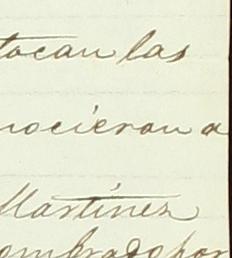 tocan las
nocieron a
Martinez
ombrado por